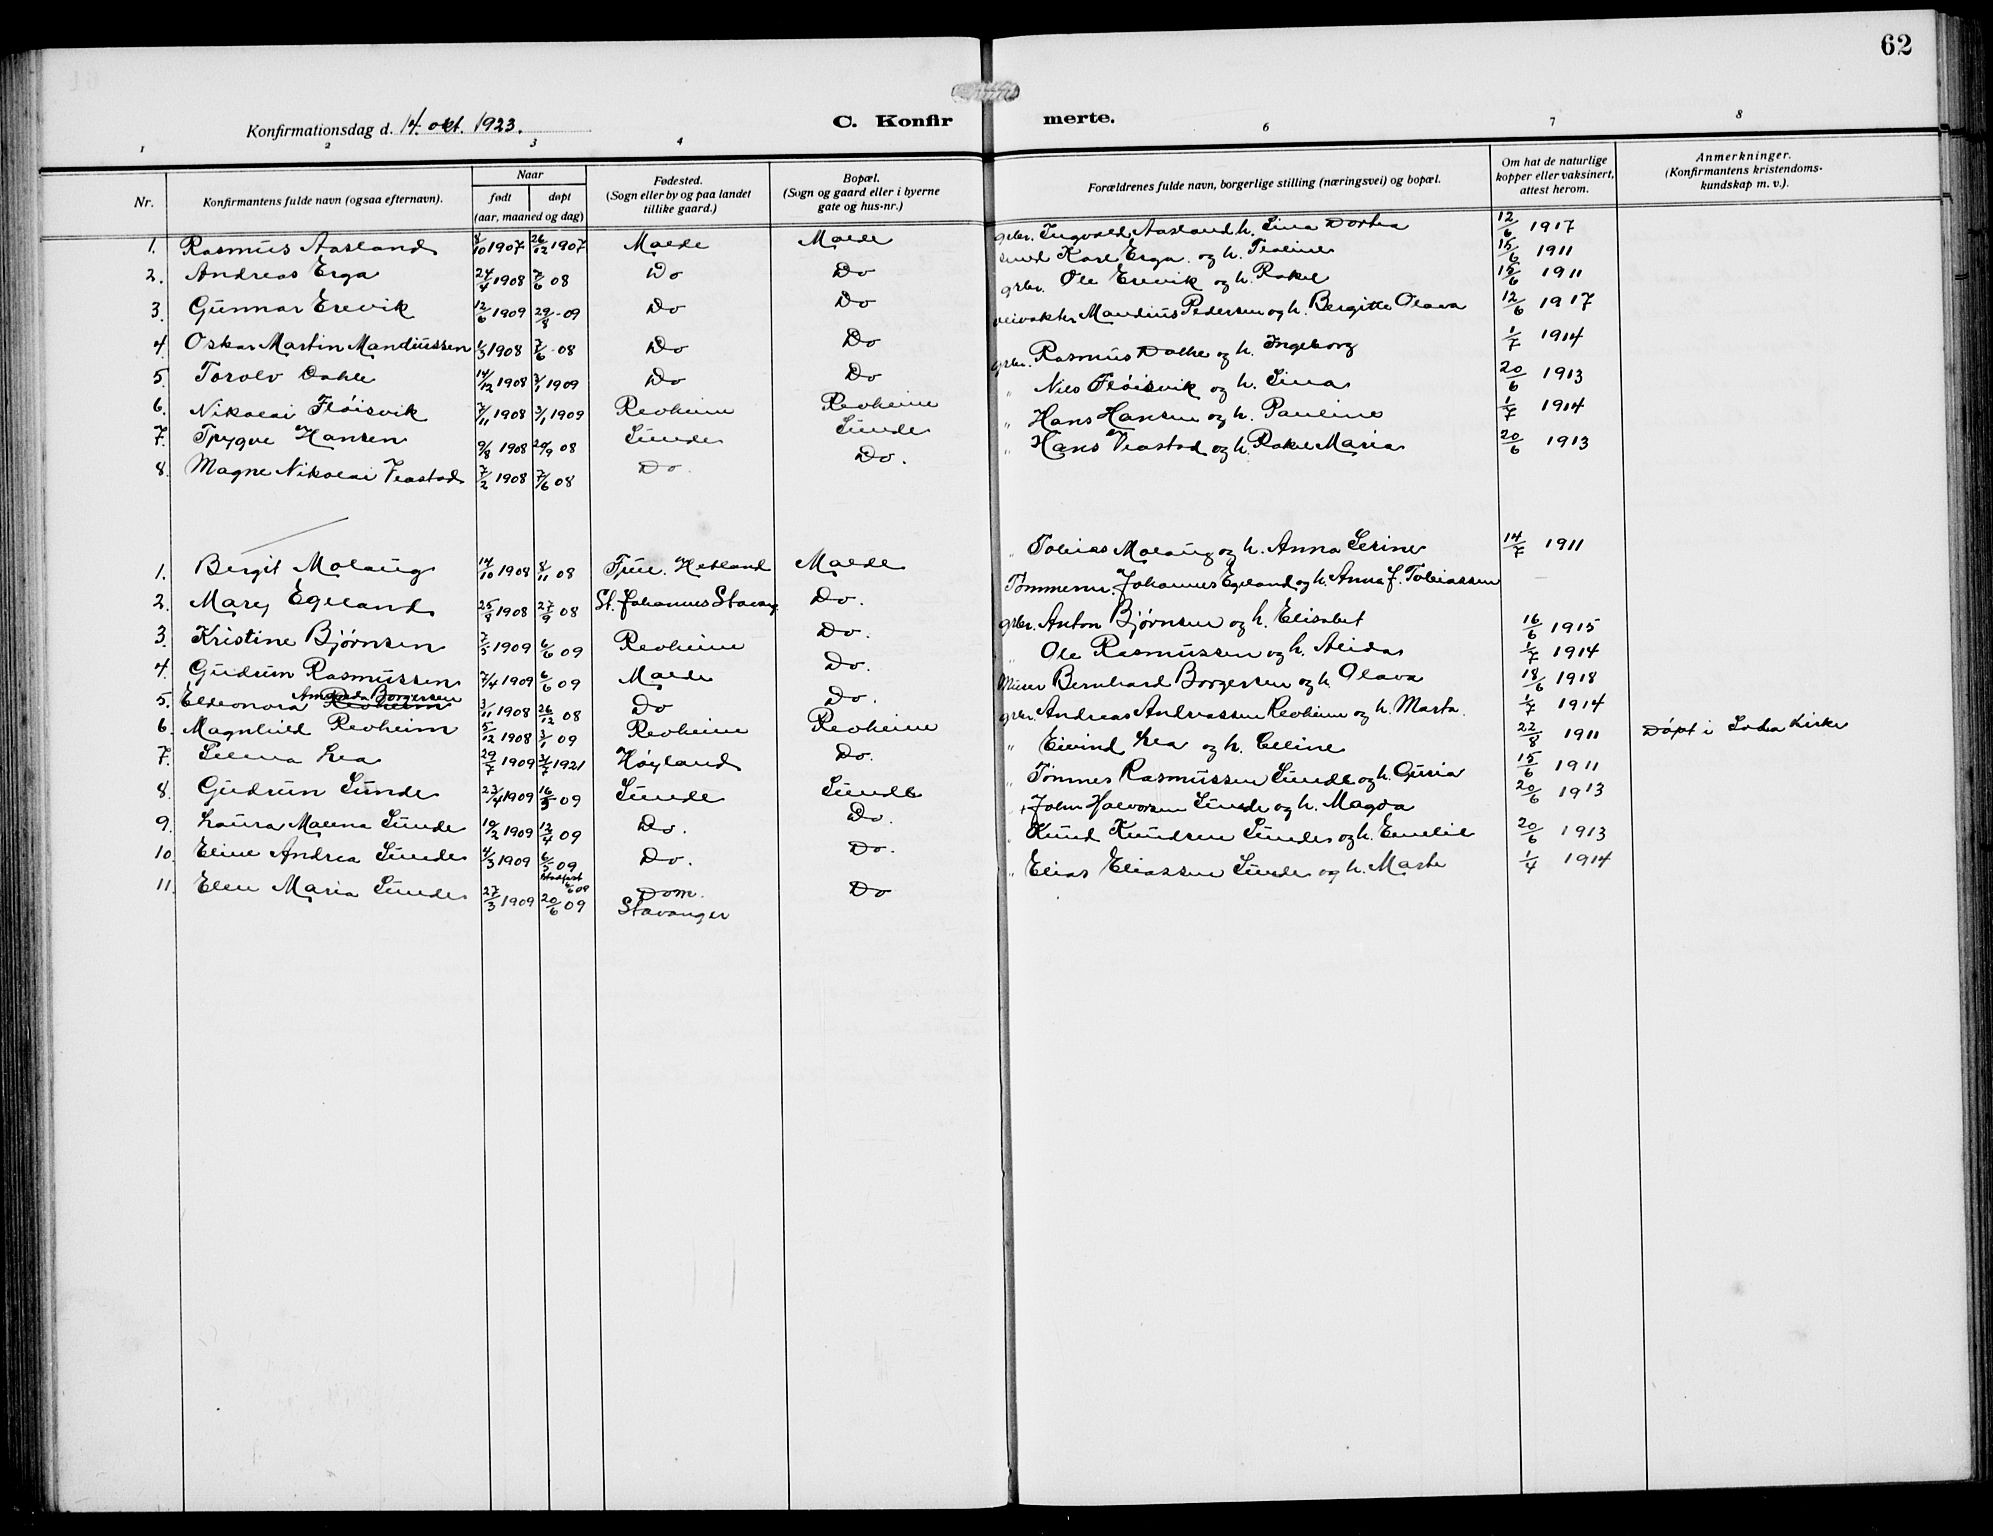 62
Konfirmationsdag d. 14. okt. 1923.
C. Konfirmerte.
1 2 3 4 6 7 8
Nr. Konfirmantens fulde navn (ogsaa efternavn). Naar født døpt (aar, maaned og dag) Fødested. (Sogn eller by og paa landet tillike gaard.) Bopæl. (Sogn og gaard eller i byerne gate og hus-nr.) Forældrenes fulde navn, borgerlige stilling (næringsvei) og bopæl. Om hat de naturlige kopper eller vaksinert, attest herom. Anmerkninger. (Konfirmantens kristendoms-kundskap m. v.).
1. Rasmus Aasland 8/10 1907 26/12 1907 Malde Malde grbr. Ingvald Aasland h. Sina Dortea 12/6 1917
2. Andreas Erga 24/4 1908 7/6 08 Do Do smed Karl Erga og h. Teoline 15/6 1911
3. Gunnar Erevik 12/6 1909 29/8 -09 Do Do grbr. Ole Erevik og h. Rakel 15/6 1911
4. Oskar Martin Mandiussen 1/3 1908 7/6 -08 Do Do veivokter Mandius Pedersen og h. Bergitte Olava 12/6 1917
5. Torolv Dahle 14/12 1908 3/1 1909 Do Do grbr. Rasmus Dalhe og h. Ingeborg 1/7 1914
6. Nikolai Fløisvik 7/11 1908 3/1 1909 Revheim Revheim " Nils Fløisvik og h. Sina 20/6 1913
7. Trygve Hansen 9/8 1908 20/9 08 Sunde Sunde " Hans Hansen og h. Pauline 1/7 1914
8. Magne Nikolai Veastad 7/2 1908 7/6 08 Do. Do. " Hans Veastad og h. Rakel Maria 20/6 1913
1. Bergit Molaug 14/10 1908 8/11 08 Tjue. Hetland Malde " Tobias Molaug og h. Anna Serine 14/7 1911
2. Mary Egeland 25/8 1908 27/9 08 St. Johannes Stavang Do. Tømmerm. Johannes Egeland og h. Anna f. Tobiassen —
3. Kristine Bjørnsen 7/5 1909 6/6 09 Revheim Do. grbr. Anton Bjørnsen og h. Elisabet 16/6 1915
4. Gudrun Rasmussen 7/4 1909 6/6 09 Malde Do. " Ole Rasmussen og h. Alida 1/7 1914
5. Eldeonora Amanda Borgersen 3/11 1908 26/12 08 Do Do. Murer Bernhard Borgersen og h. Olava 18/6 1918
6. Magnhild Revheim 5/12 1908 3/1 09 Revheim Revheim grbr. Andreas Andreassen Revheim og h. Marta. 1/7 1914
7. Selma Lea 29/7 1909 3/7 1921 Høyland Do. " Eivind Lea og h. Celine 22/8 1911 Døpt i Sola kirke
8. Gudrun Sunde 23/4 1909 16/5 09 Sunde Sunde " Tønnes Rasmussen Sunde og h. Guria 15/6 1911
9. Laura Malena Sunde 19/2 1909 12/4 09 Do. Do. " + John Halvorsen Sunde og h. Magda 20/6 1913
10. Eline Andrea Sunde 4/3 1909 6/5 09 Do. Do. " Knud Knudsen Sunde og h. Emelie 20/6 1913
11. Elen Maria Sunde 27/3 1909 20/6 09 Dom. Stavanger Do " Elias Eliassen Sunde og h. Marte 1/4 1914